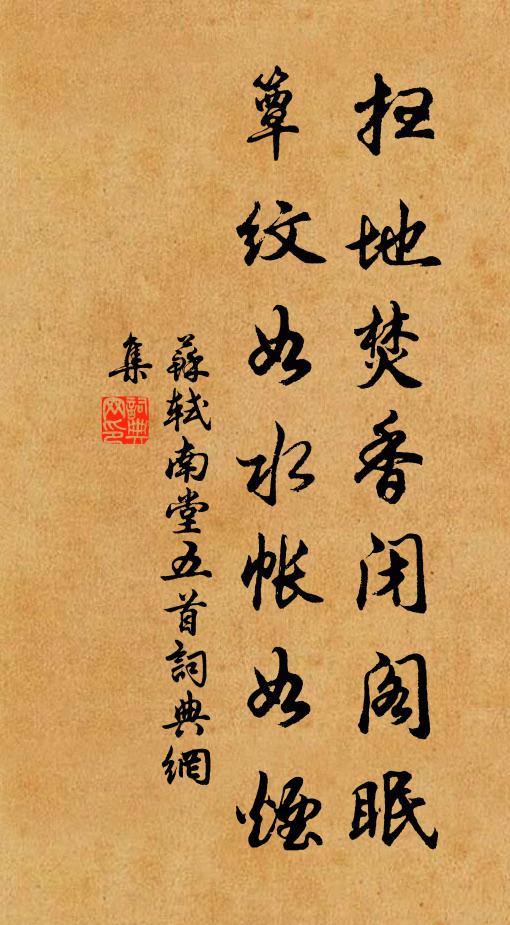 扫地焚香闭阁眠
簟纹如水帐如烟
蘇軾南堂五首詞典網
集
詞典网印